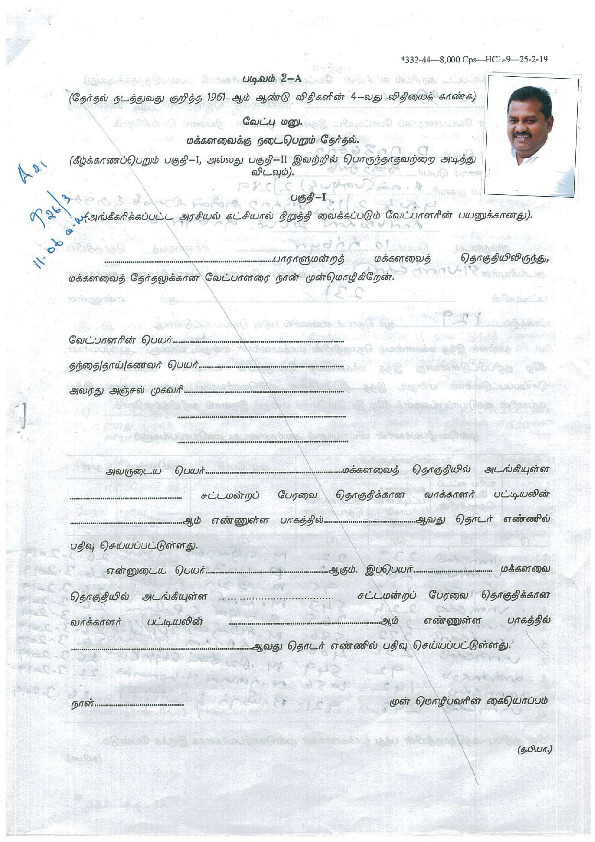 *332-44—8,000 Cps—HCL-9—25-2-19
படிவம் 2-A
(தேர்தல் நடத்துவது குறித்த 1961 ஆம் ஆண்டு விதிகளின் 4-வது விதியைக் காண்க)
வேட்பு மனு.
மக்களவைக்கு நடைபெறும் தேர்தல்.
(கீழ்க்காணப்பெறும் பகுதி-I, அல்லது பகுதி-II இவற்றில் பொருந்தாதவற்றை அடித்து
விடவும்).
A 21
P 26/3
11-06
பகுதி-I
(அங்கீகரிக்கப்பட்ட அரசியல் கட்சியால் நிறுத்தி வைக்கப்படும் வேட்பாளரின் பயனுக்கானது).
..............................பாராளுமன்றத் மக்களவைத் தொகுதியிலிருந்து,
மக்களவைத் தேர்தலுக்கான வேட்பாளரை நான் முன்மொழிகிறேன்.
வேட்பாளரின் பெயர்..............................
தந்தை/தாய்/கணவர் பெயர்..............................
அவரது அஞ்சல் முகவரி..............................
..............................
..............................
அவருடைய பெயர்..............................மக்களவைத் தொகுதியில் அடங்கியுள்ள
.............................. சட்டமன்றப் பேரவை தொகுதிக்கான வாக்காளர் பட்டியலின்
..............................ஆம் எண்ணுள்ள பாகத்தில்..............................ஆவது தொடர் எண்ணில்
பதிவு செய்யப்பட்டுள்ளது.
என்னுடைய பெயர்..............................ஆகும். இப்பெயர்.............................. மக்களவை
தொகுதியில் அடங்கியுள்ள .............................. சட்டமன்றப் பேரவை தொகுதிக்கான
வாக்காளர் பட்டியலின் ..............................ஆம் எண்ணுள்ள பாகத்தில்
..............................ஆவது தொடர் எண்ணில் பதிவு செய்யப்பட்டுள்ளது.
நாள்.............................. முன் மொழிபவரின் கையொப்பம்
(தபியா.)